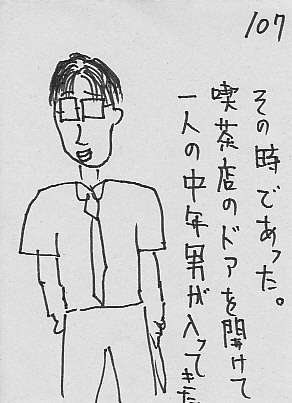 107
その時であった。
喫茶店のドアを開けて
一人の中年男が入ってきた